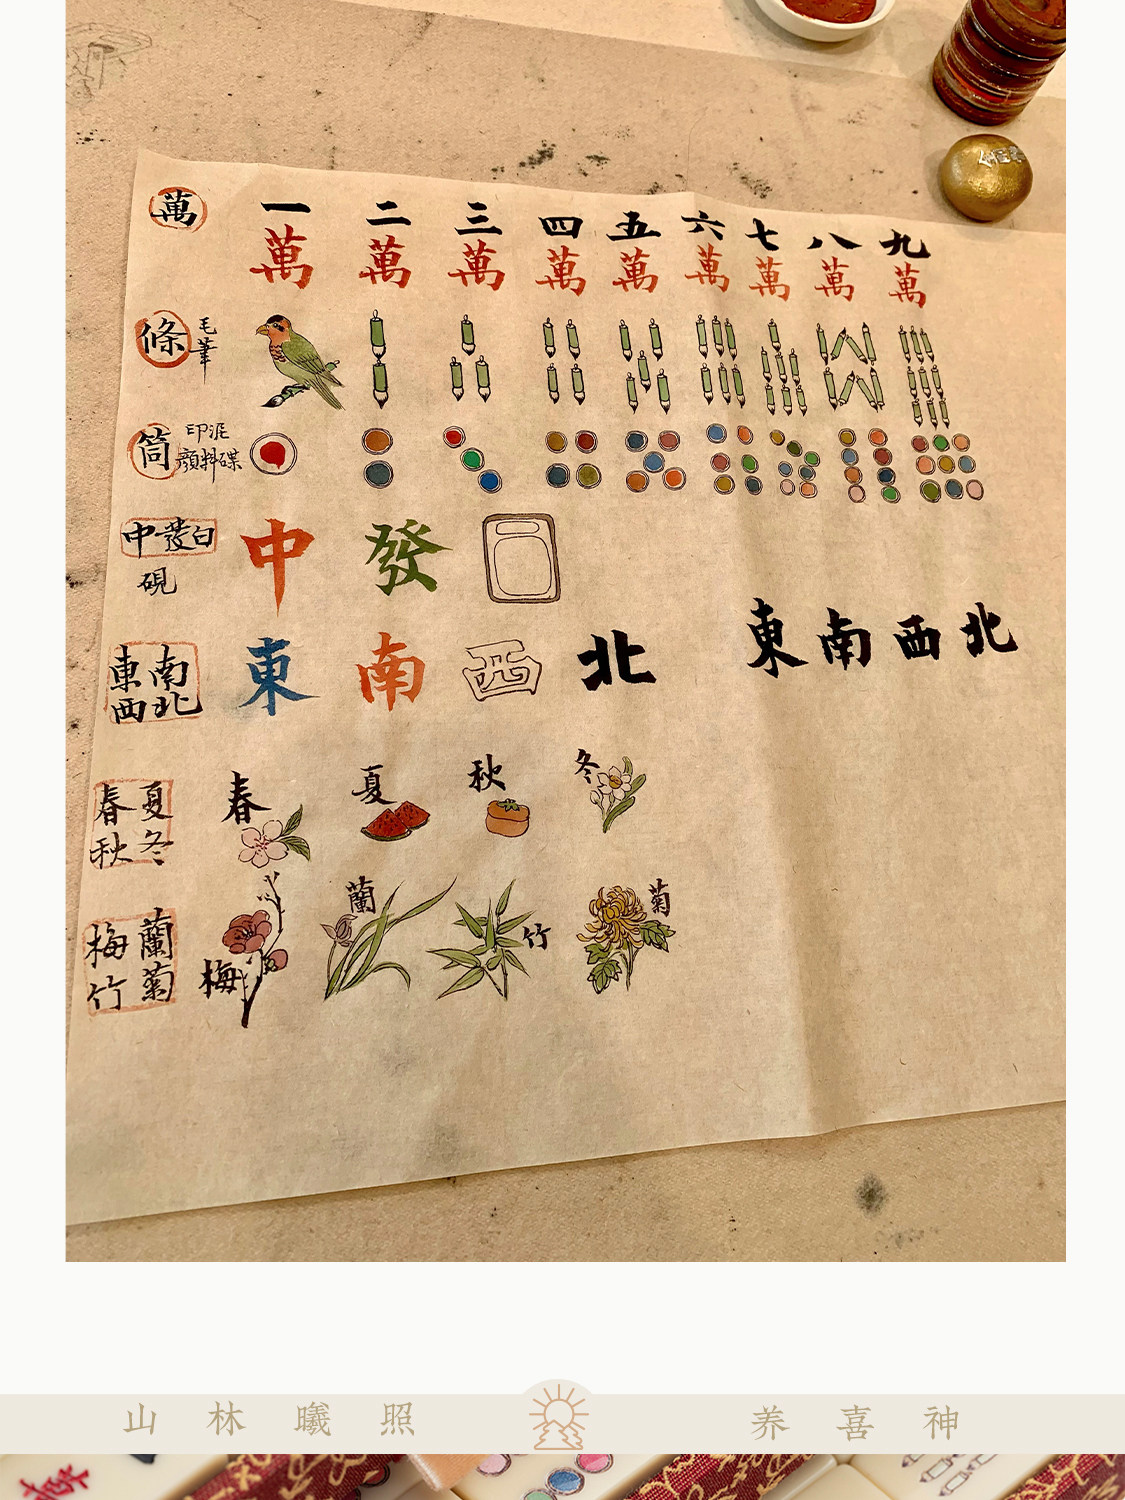 萬 一 二 三 四 五 六 七 八 九
萬 萬 萬 萬 萬 萬 萬 萬 萬
條 毛筆
筒 印泥
顏料碟
中發白 中 發
硯
東南 東 南 西 北 東 南 西 北
西北
春夏 春 夏 秋 冬
秋冬
梅蘭 梅 蘭 竹 菊
竹菊
山林曦照 养喜神
萬